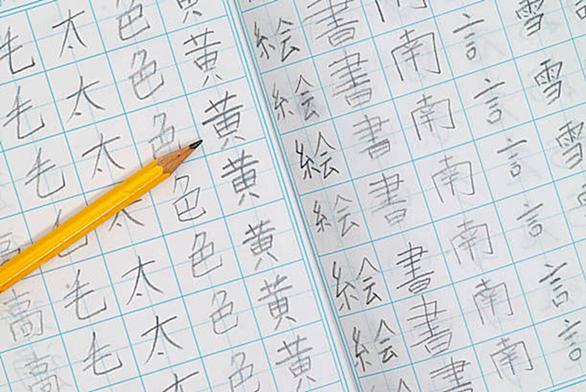 雪雪雪
言言言言言言
南南南南南南
書書書書書書書
絵絵絵絵絵絵
黄黄黄黄黄黄黄
色色色色色色色
太太太太太太太
毛毛毛毛毛毛
高高